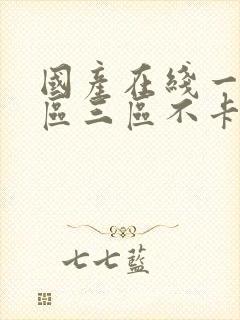 國產在綫一
區三區不卡
七七藍